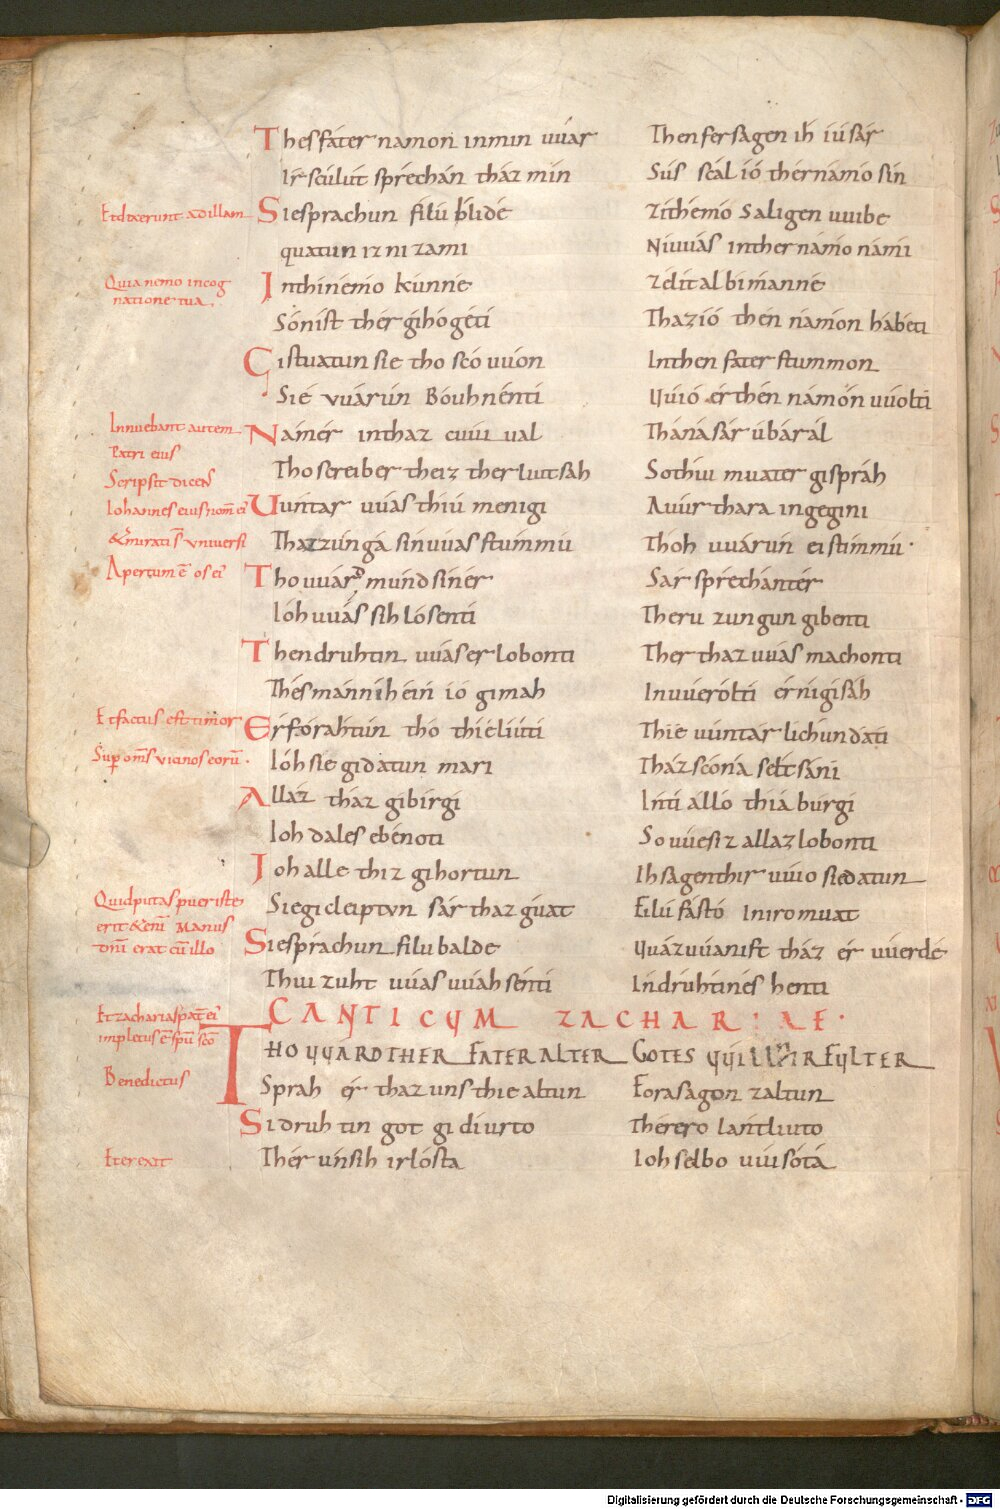 Thes fáter namon in min uuár Then fersagen ih íu sár
Ir sculut spréchán tház min Sús scal ió ther námo sín
Et dixerunt ad illam
Sie sprachun filú blidé Zi themo saligen uuibe
quatun iz ni zami Ni uuás in ther námo námi
Quia nemo in cog
natione tua
In thinémo kúnne Zélit al bi mánne
Só níst thér gihógeti Thaz ió then námon hábeti
Gistuatun sie tho scóuuón In then fater stummon
Sié uuárún Bóuhnénti Uuió ér then námon uuólti
Innuebant autem
Patri eius
Námer in thaz cuuiual Thánasár úbarál
Scripsit dicens
Tho screiber theiz ther liut sah So thiu muater gispráh
Iohannes e͞ nom̄ ei
Uuntar uuás thiú menigi Auur thara ingegini
& mirati s̄ universi
Thaz zúngá sin uuas stúmmu Thoh uuárún ei stimmu·
Apertum ē os ei
Tho uuárd mund sinér Sár spréchantér
Ióh uuás sih lósenti Theru zungun gibenti
Then druhtin uuaser lobonti Ther thaz uuás machonti
Thés mánnihéin ió gimah In uuerólti ér nigisáh
Et factus est timor
Erforahtún tho thié liúti Thie uuntarlichun dati
Sup om̄s vicinos eorū·
Ióh sie gidatun mari Tház scóna séltsáni
Allaz tház gibirgi Inti álló thiá burgi
Ioh dales ebénoti So uuesiz allaz lobonti
Ioh alle thiz gihortun Ih sagen thir uuio sie datun
Quid putas puer iste
Sie gicleiptun sár thaz guat Filú fásto in iro muat
erit &enī Manus
dn̄i erat cū illo
Sie spráchun filu balde Uuáz uuánist tház ér uuerde
Thiu zuht uuas uuahsénti In druhtinés henti
Et zacharias pat̄ ei
CANTICUM ZACHARIAE·
impletus ē sp̄u sc̄o
THO UUARD THER FATER ALTER GOTES UUIZZIR FULTER
Benedictus
Sprah ér thaz uns thie altun Forasagon zaltun
Si druhtin got gidiurto Thérero lantliuto
Et erexit
Thér únsih irlósta Ioh selbo uuisóta
Digitalisierung gefördert durch die Deutsche Forschungsgemeinschaft - DFG